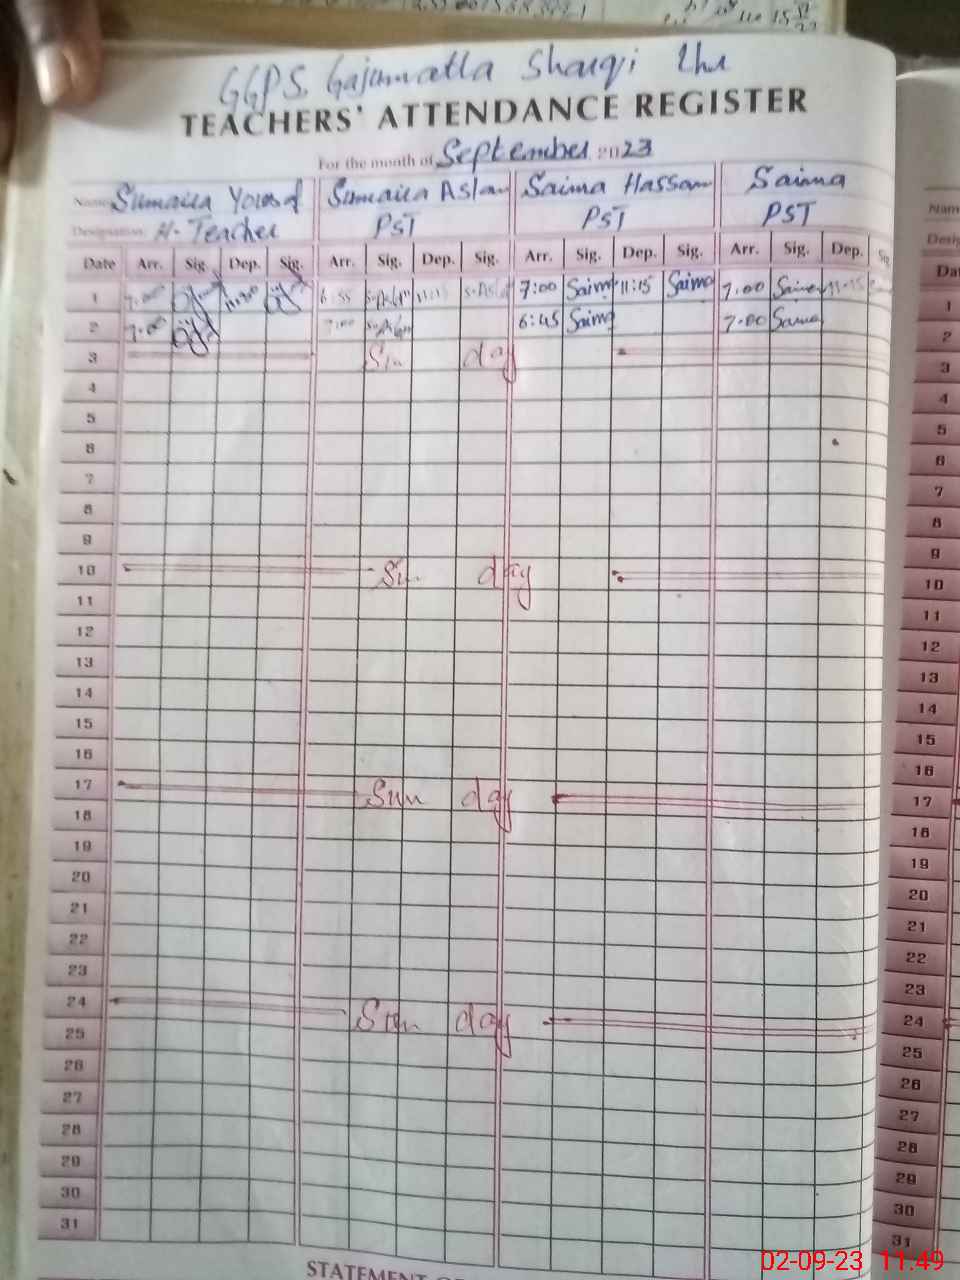 GGPS. Gajjumatta Sharqi Lhr
TEACHERS' ATTENDANCE REGISTER
For the month of September 2023
Name Sumaira Yousaf Sumaira Aslam Saima Hassan Saima
Designation H-Teacher PST PST PST
Date Arr. Sig. Dep. Sig. Arr. Sig. Dep. Sig. Arr. Sig. Dep. Sig. Arr. Sig. Dep. Sig.
1 7:00 11:30 6:55 S.Aslam 11:15 S.Aslam 7:00 Saima 11:15 Saima 7.00 Saima 11:15
2 7:00 7:00 S.Aslam 6:45 Saima 7.00 Saima
3 Sun day
4
5
6
7
8
9
10 Sun day
11
12
13
14
15
16
17 Sun day
18
19
20
21
22
23
24 Sun day
25
26
27
28
29
30
31
STATEMENT
Name
1
2
3
4
5
6
7
8
9
10
11
12
13
14
15
16
17
18
19
20
21
22
23
24
25
26
27
28
29
30
31
02-09-23 11:49